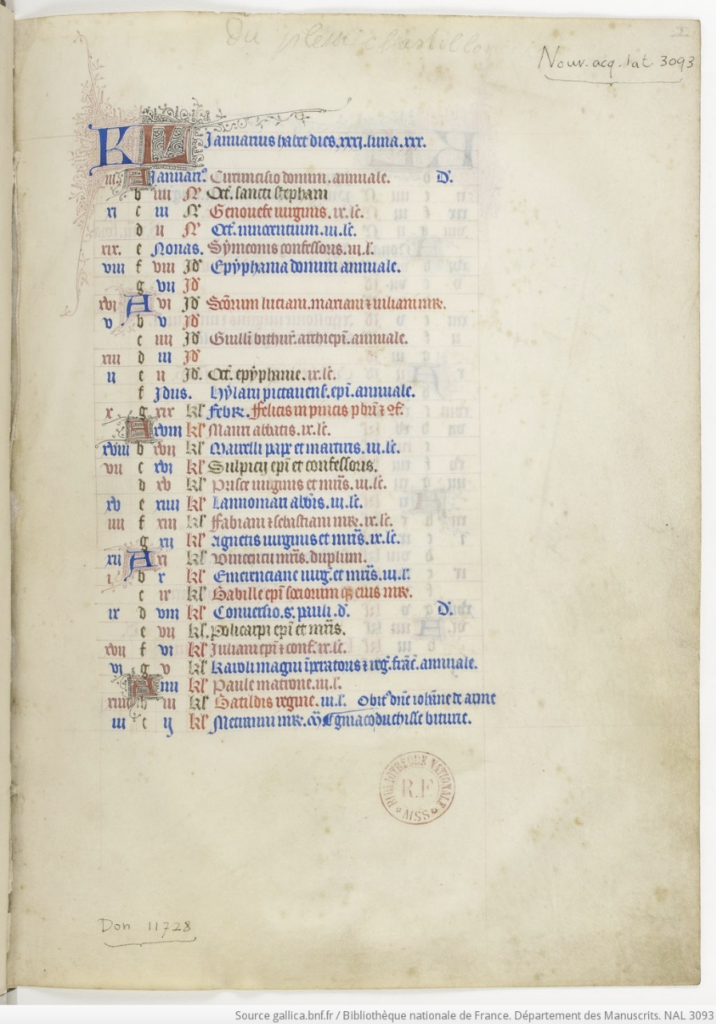 Du plessis chastillon
Nouv. acq. lat. 3093
KL Januarius habet dies .xxxi. luna .xxx.
iii A Januari9 Circuncisio domini. annuale. D'.
b iiii N' Oct' sancti stephani
xi c iii N' Genovefe virginis .ix. lc.
d ii N' Oct' innocentium .iii. lc.
xix. e Nonas. Symeonis confessoris. iii. l.
viii f viii Id' Epyphania domini annuale.
g vii Id'
xvi A vi Id' Scorum luciani. mariani 7 iuliani mr.
v b v Id'
c iiii Id' Guillmi bithur. archiepi. annuale.
xiii d iii Id'
ii e ii Id'. Oct' epyphanie. ix. lc.
f Idus. Hylarii pictavens. epi. annuale.
x. g xix kl' Febr. Felicis in pincis pbri 7 9f.
A xviii kl' Mauri abbatis. ix. lc.
xviii b xvii kl' Marcelli pape et martiris. iii. lc.
vii c xvi kl' Sulpicii epi et confessoris.
d xv kl' Prisce virginis et mris. iii. lc.
xv e xiiii kl' Lannomari abbis. iii. lc.
iiii f xiii kl' Fabiani 7 sebastiani mr. ix. lc.
g xii kl' Agnetis virginis et mris. ix. lc.
xii A xi kl' Vincencii mris. duplum.
i. b x kl' Emerenciane virg. et mris. iii. l.
c ix kl' Babille epi sociorum q3 eius mr.
ix d viii kl' Conversio. s. pauli. d'. D'.
e vii kl'. Policarpi epi et mris.
xvii f vi kl' Iuliani epi 7 conf. ix. lc.
vi g v kl' Karoli magni ipratoris 7 reg. franc. annuale.
A iiii kl' Paule matrone. iii. l.
xiiii b iii kl' Batildis regine. iii. l. Obit9 dne iohane de
iii c ii kl' Metranni mr. duchisse biturie.
BIBLIOTHEQUE NATIONALE
R.F
MSS
Don 11728
Source gallica.bnf.fr / Bibliothèque nationale de France. Département des Manuscrits. NAL 3093